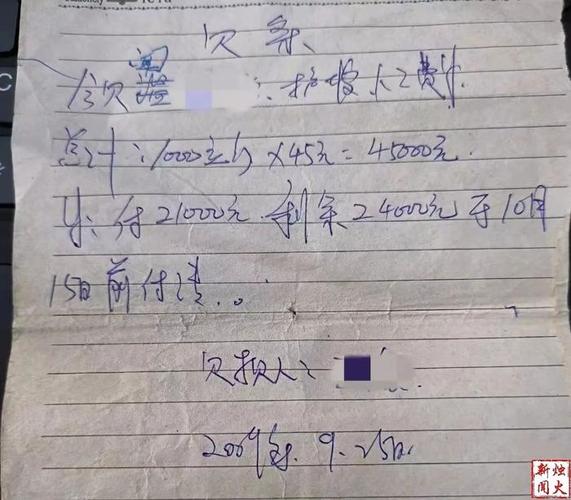 欠条
今欠 人工费
总计:1000平方×45元=45000元.
付21000元.剩余24000元于10月
15日前付清。
欠款人:
2009年.9.25日.
烛火新闻